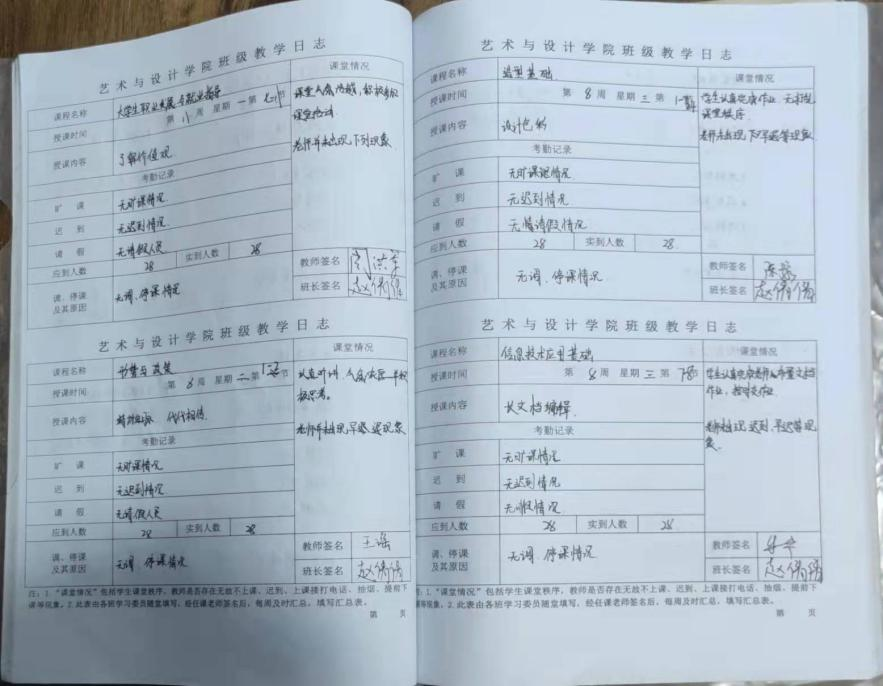 艺术与设计学院班级教学日志
课程名称 大学生职业发展与就业指导 课堂情况
授课时间 第 八 周 星期 一 第 节 课堂气氛活跃,积极参与
课堂活动
授课内容 了解价值观 老师并未出现下列现象
考勤记录
旷 课 无旷课情况
迟 到 无迟到情况
请 假 无请假人员
应到人数 28 实到人数 28
调、停课
及其原因 无调、停课情况 教师签名
班长签名
艺术与设计学院班级教学日志
课程名称 形势与政策 课堂情况
授课时间 第 8 周 星期 二 第 节 认真听讲,气氛
授课内容 精神 代代相传
考勤记录 老师并未出现早退、迟现象
旷 课 无旷课情况
迟 到 无迟到情况
请 假 无请假人员
应到人数 28 实到人数 28
调、停课
及其原因 无调、停课情况 教师签名 王瑶
班长签名
注:1."课堂情况"包括学生课堂秩序,教师是否存在无故不上课、迟到、上课接打电话、抽烟、提前下
课等现象。2.此表由各班学习委员随堂填写,经任课老师签名后,每周及时汇总,填写汇总表。
第 页
艺术与设计学院班级教学日志
课程名称 造型基础 课堂情况
授课时间 第 8 周 星期 三 第 学生认真完成作业,无扰乱
课堂秩序
授课内容 设计色彩
考勤记录
旷 课 无旷课情况
迟 到 无迟到情况
请 假 无请假情况
应到人数 28 实到人数 28
调、停课
及其原因 无调、停课情况 教师签名
班长签名
艺术与设计学院班级教学日志
课程名称 信息技术应用基础 课堂情况
授课时间 第 8 周 星期 三 第 78 节 学生认真完成老师布置文档
作业,按时交作业
授课内容 长文档编辑
考勤记录 老师未出现迟到、早退等现
象
旷 课 无旷课情况
迟 到 无迟到情况
请 假
应到人数 28 实到人数 28
调、停课
及其原因 无调、停课情况 教师签名
班长签名
注:1."课堂情况"包括学生课堂秩序,教师是否存在无故不上课、迟到、上课接打电话、抽烟、提前下
课等现象。2.此表由各班学习委员随堂填写,经任课老师签名后,每周及时汇总,填写汇总表。
第 页